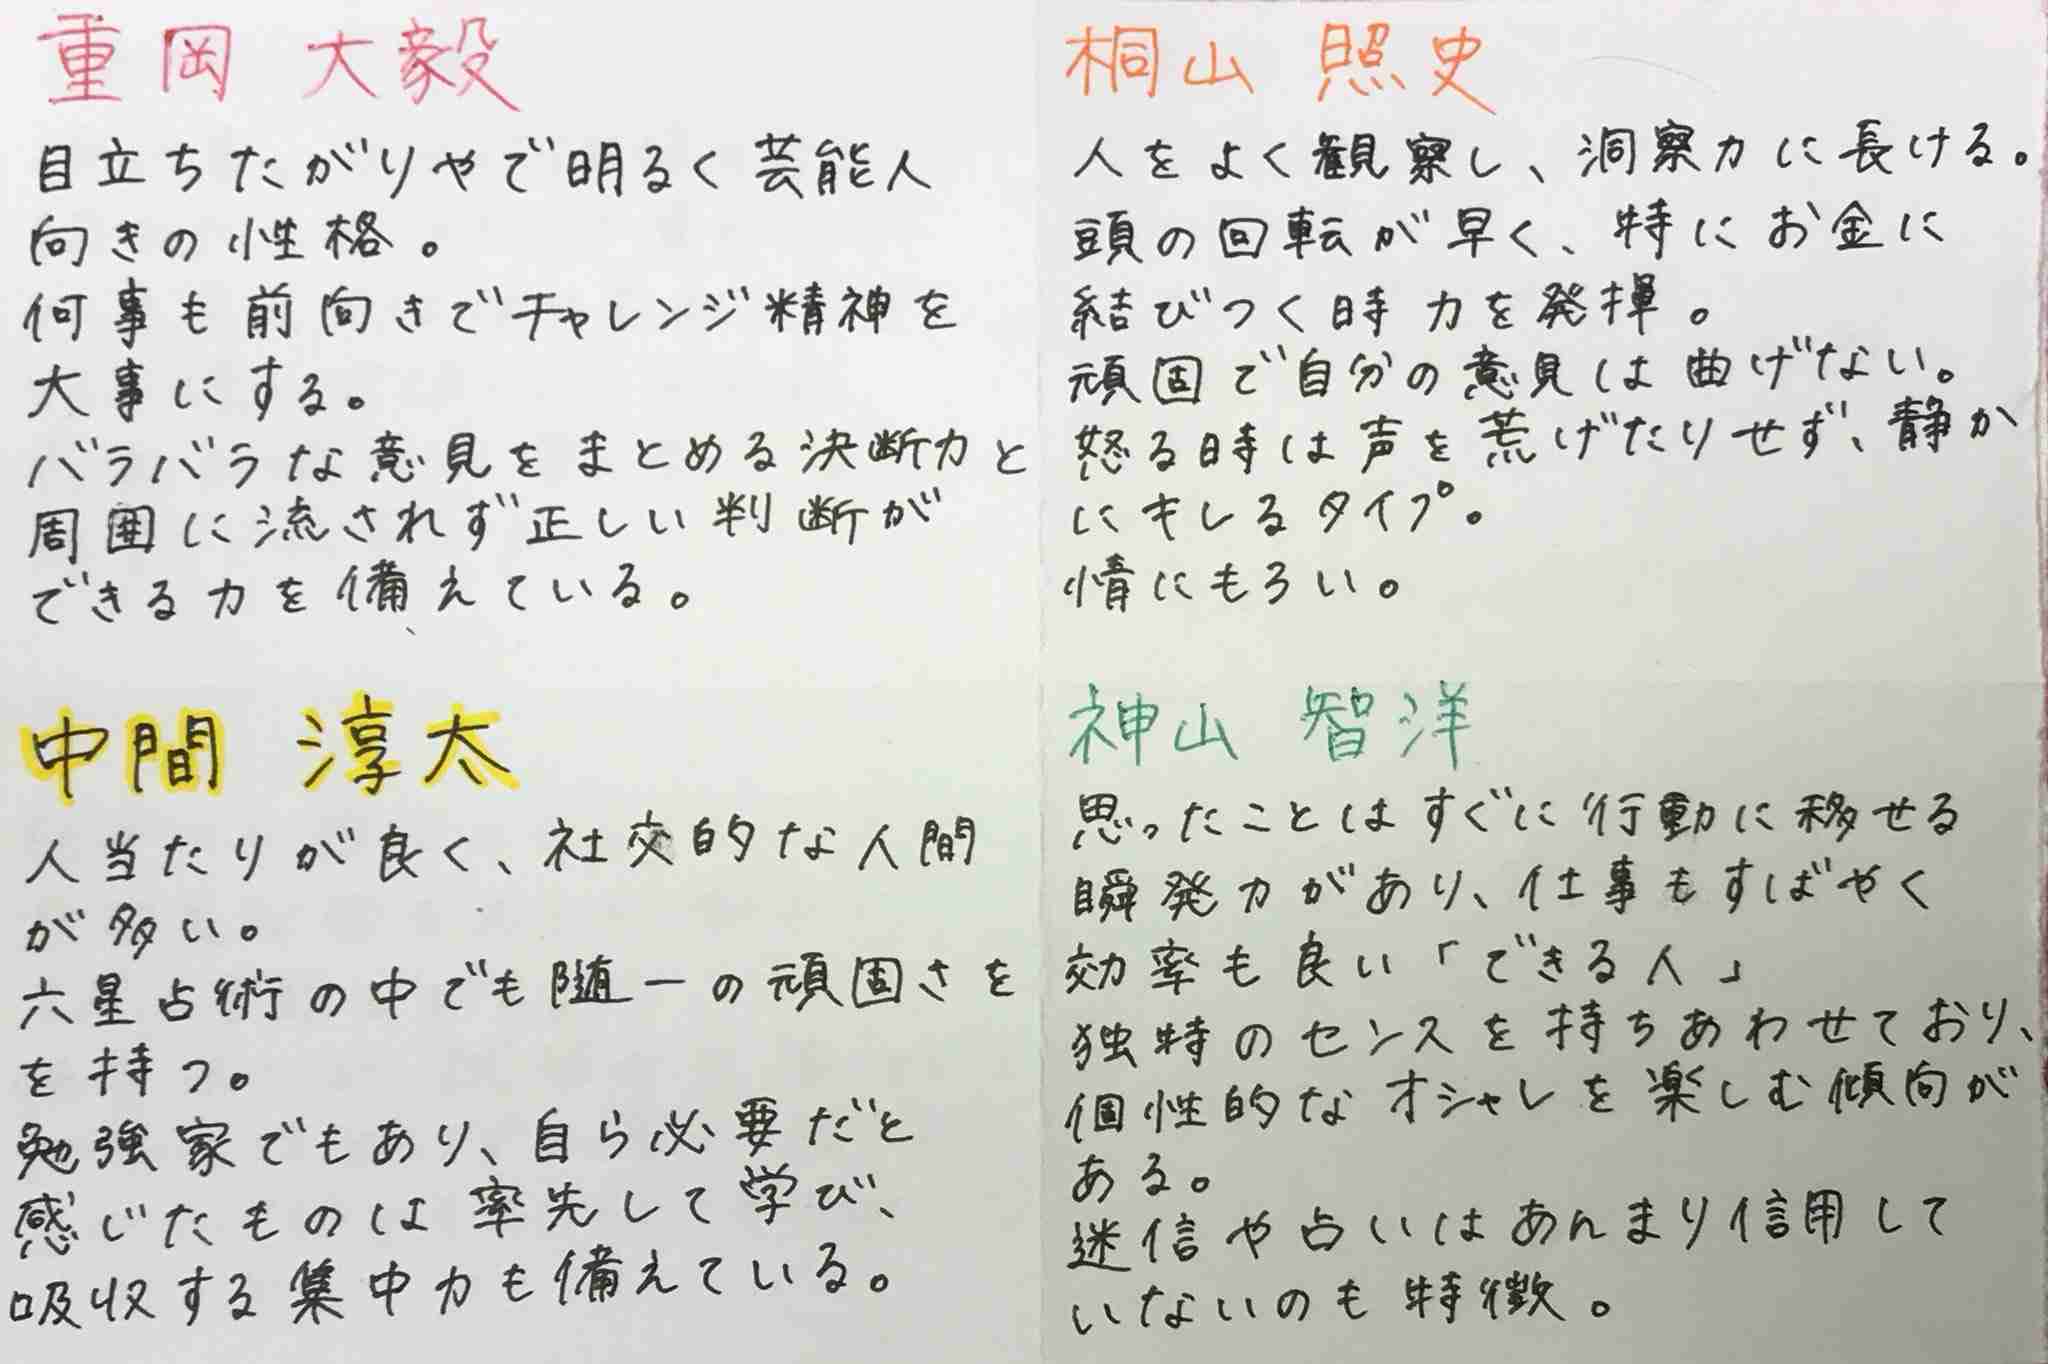 重岡 大毅
目立ちたがりやで明るく芸能人
向きの性格。
何事も前向きでチャレンジ精神を
大事にする。
バラバラな意見をまとめる決断力と
周囲に流されず正しい判断が
できる力を備えている。
桐山 照史
人をよく観察し、洞察力に長ける。
頭の回転が早く、特にお金に
結びつく時力を発揮。
頑固で自分の意見は曲げない。
怒る時は声を荒げたりせず、静か
にキレるタイプ。
情にもろい。
中間 淳太
人当たりが良く、社交的な人間
が多い。
六星占術の中でも随一の頑固さを
を持つ。
勉強家でもあり、自ら必要だと
感じたものは率先して学び、
吸収する集中力も備えている。
神山 智洋
思ったことはすぐに行動に移せる
瞬発力があり、仕事もすばやく
効率も良い「できる人」
独特のセンスを持ちあわせており、
個性的なオシャレを楽しむ傾向が
ある。
迷信や占いはあんまり信用して
いないのも特徴。